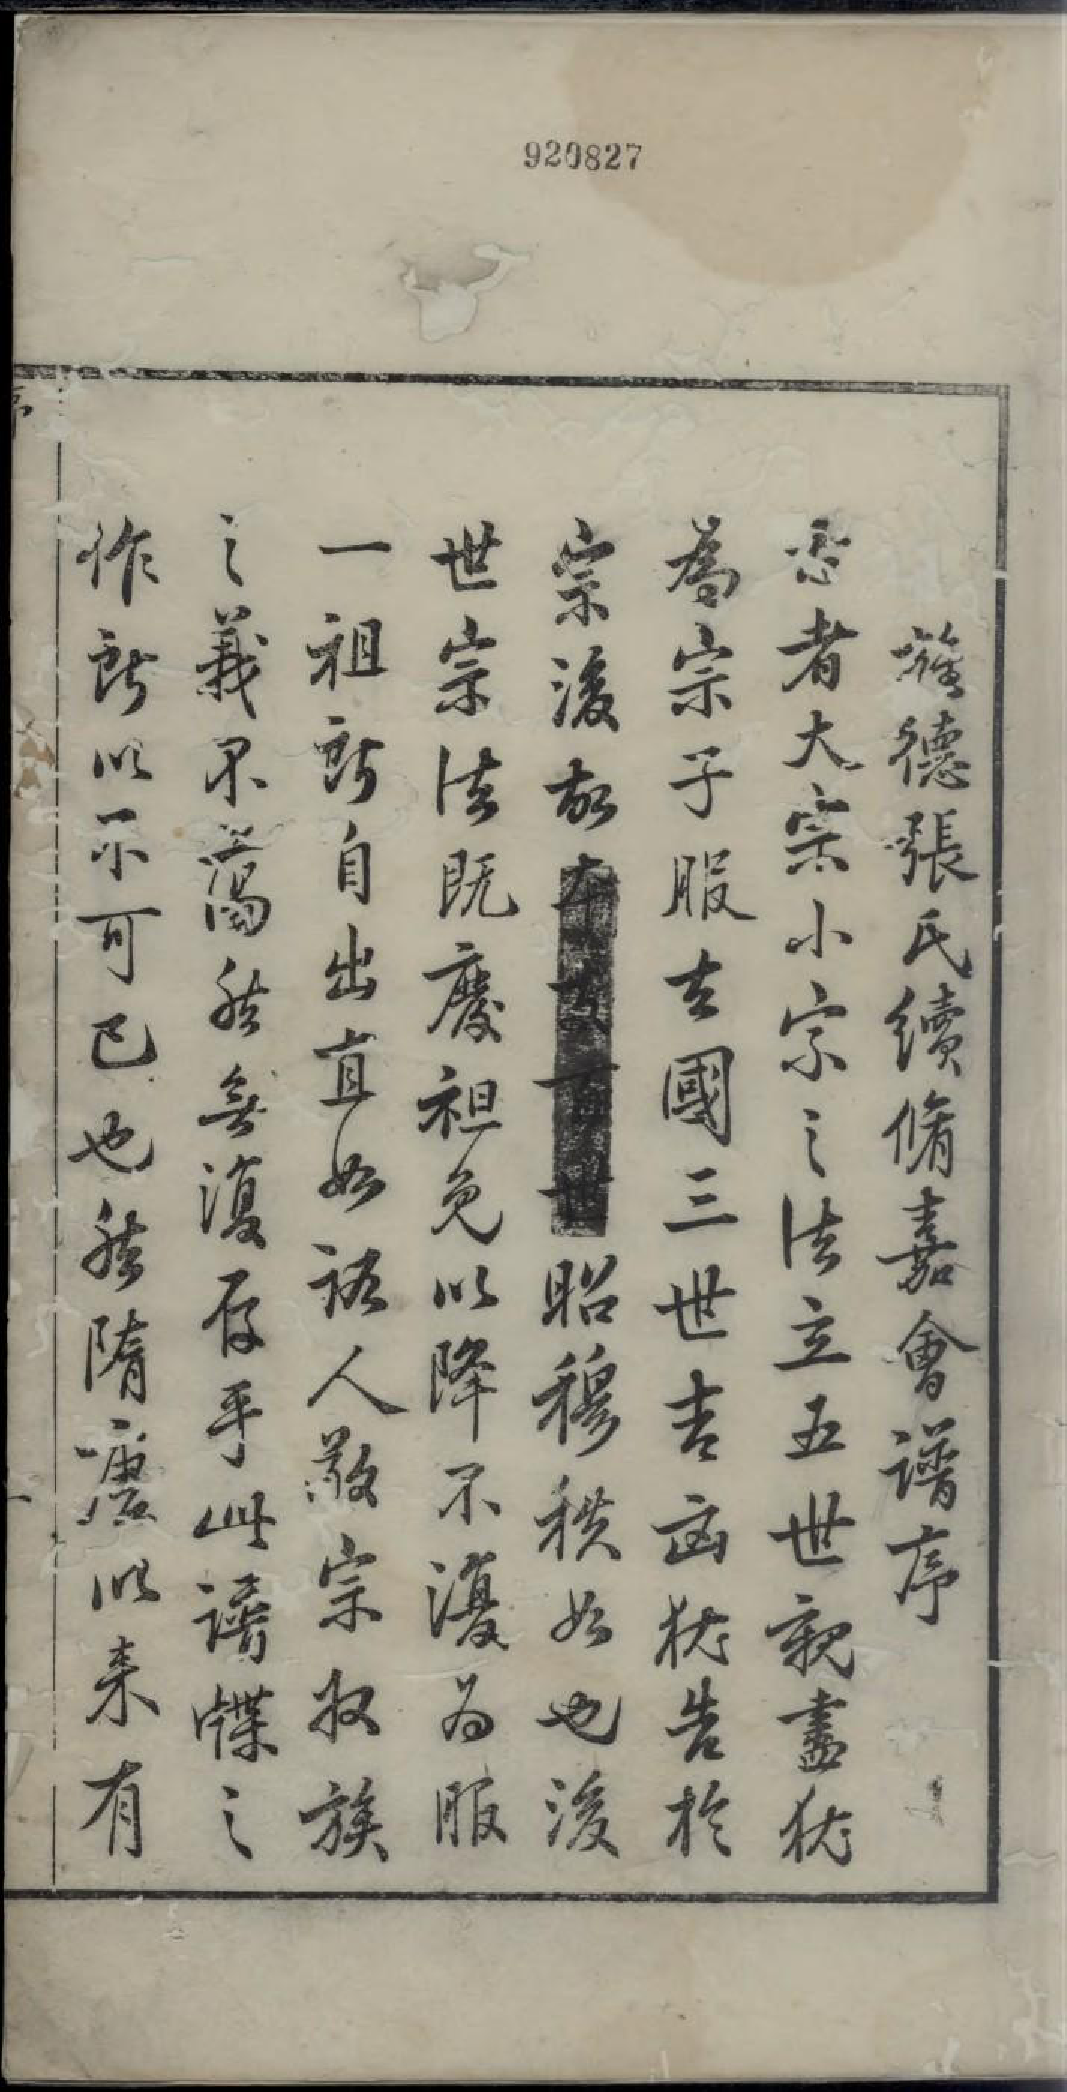 920827
旌德張氏續脩嘉會譜序
者大宗小宗之法立五世親盡猶
為宗子服去國三世吉凶猶告於
宗後故本支百世昭穆秩如也後
世宗法既廢袒免以降不復為服
一祖所自出直如路人敬宗收族
之義不蕩然無復存乎此譜牒之
作所以不可已也然隋唐以來有